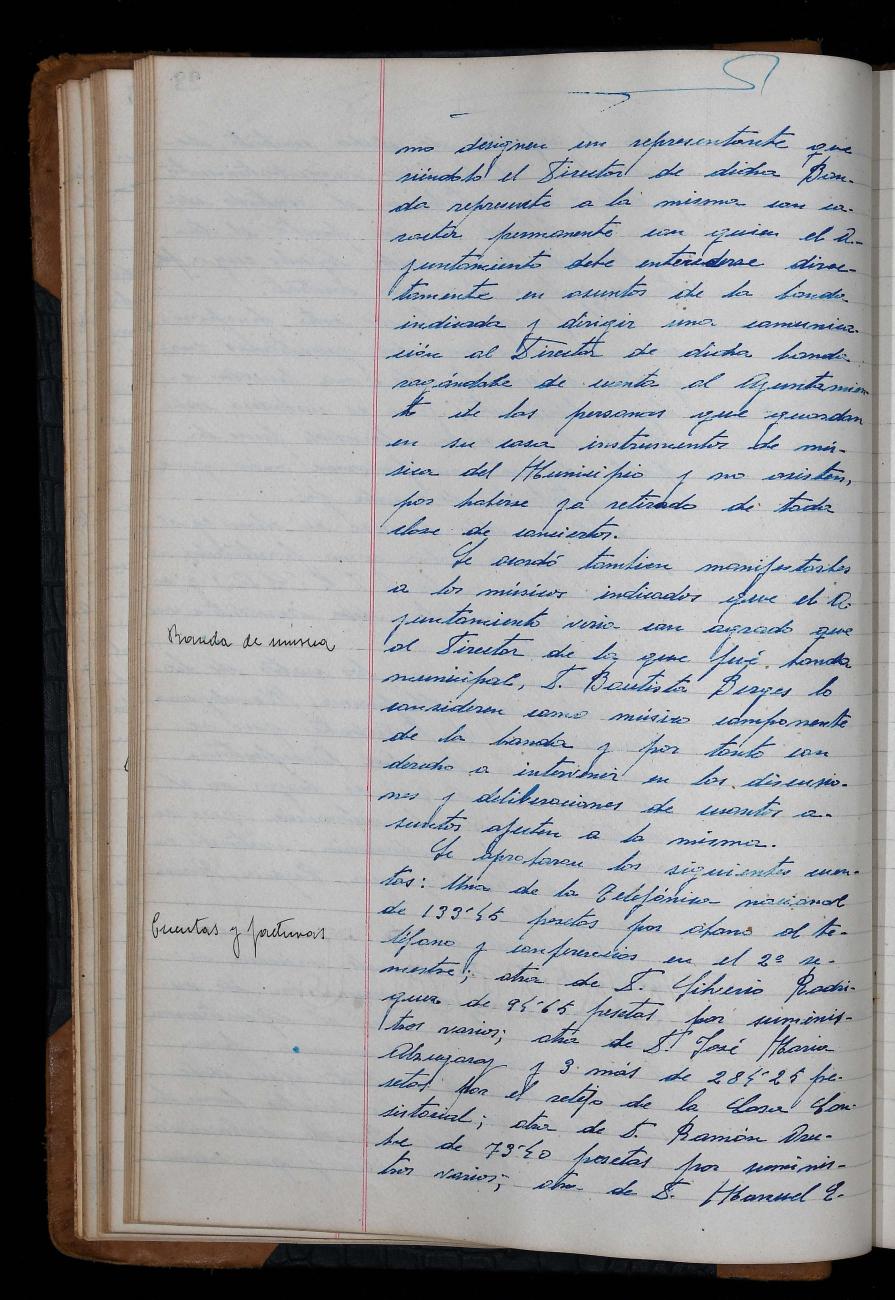 mo designen un representante que
siéndolo el Director de dicha Ban-
da represente a la misma con ca-
racter permanente con quien el A-
yuntamiento debe entenderse direc-
tamente en asuntos de la banda
indicada y dirigir una comunica-
ción al Director de dicha banda
rogándole de cuenta al Ayuntamien-
to de las personas que guardan
en su casa instrumentos de mú-
sica del Municipio y no asisten,
por haberse ya retirado de toda
clase de conciertos.
Se acordó tambien manifestarles
a los músicos indicados que el A-
yuntamiento veria con agrado que
Banda de música
al Director de la que fué banda
municipal, D. Bautista Berges lo
consideren como músico componente
de la banda y por tanto con
derecho a intervenir en las discusio-
nes y deliberaciones de cuantos a-
suntos afecten a la misma.
Se aprobaron las siguientes cuen-
tas: Una de la Telefónica nacional
Cuentas y facturas
de 133'45 pesetas por abono al te-
léfono y conferencias en el 2º se-
mestre; otra de D. Silverio Rodri-
guez de 94'65 pesetas por suminis-
tros varios; otra de D. José Maria
y 3 más de 284'25 pe-
setas por el retejo de la Casa Con-
sistorial; otra de D. Ramón
de 73'40 pesetas por suminis-
tros varios; otra de D. Manuel E-